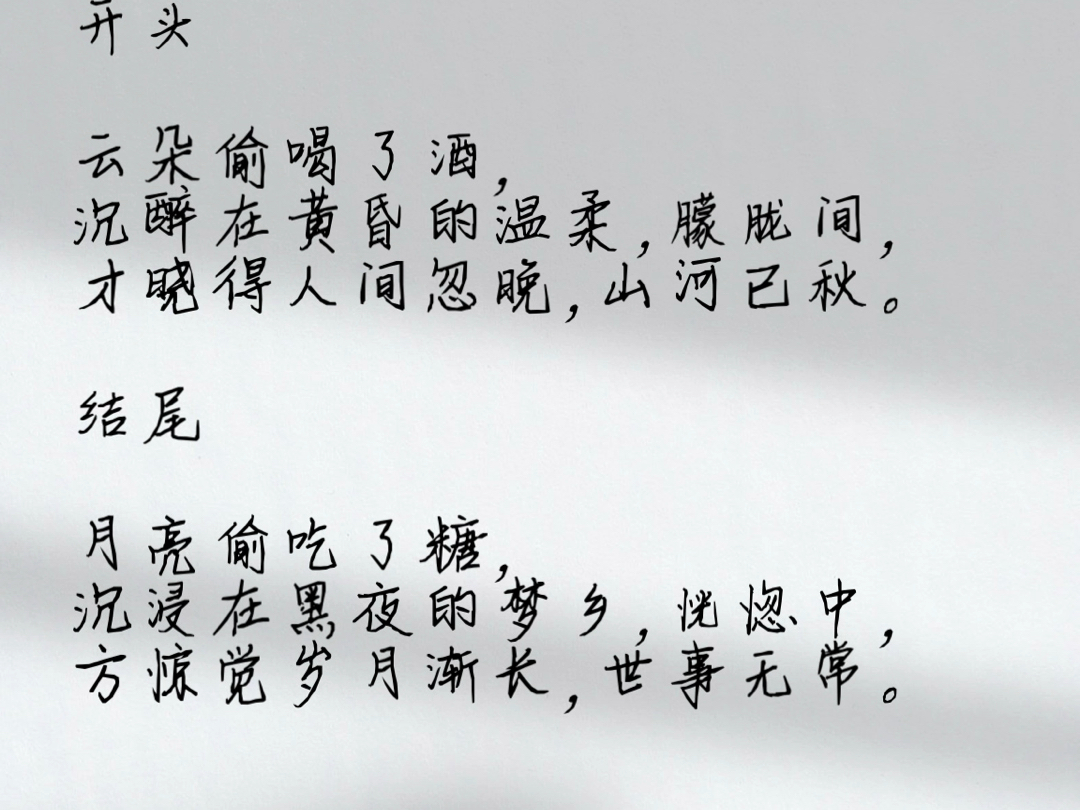 开头
云朵偷喝了酒，
沉醉在黄昏的温柔，朦胧间，
才晓得人间忽晚，山河已秋。
结尾
月亮偷吃了糖，
沉浸在黑夜的梦乡，恍惚中，
方惊觉岁月渐长，世事无常。